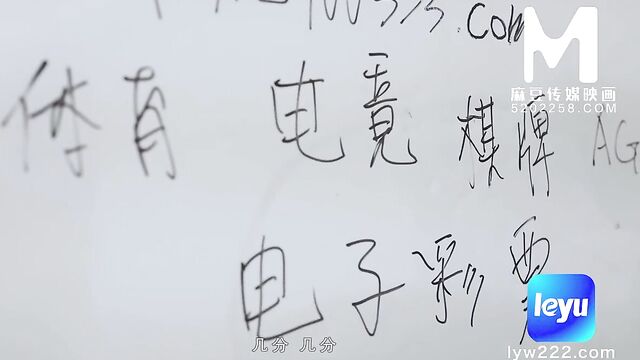 .com
麻豆传媒映画
5202258.COM
体育 电竞 棋牌 AG
电子彩票
leyu
几分 几分
lyw222.com